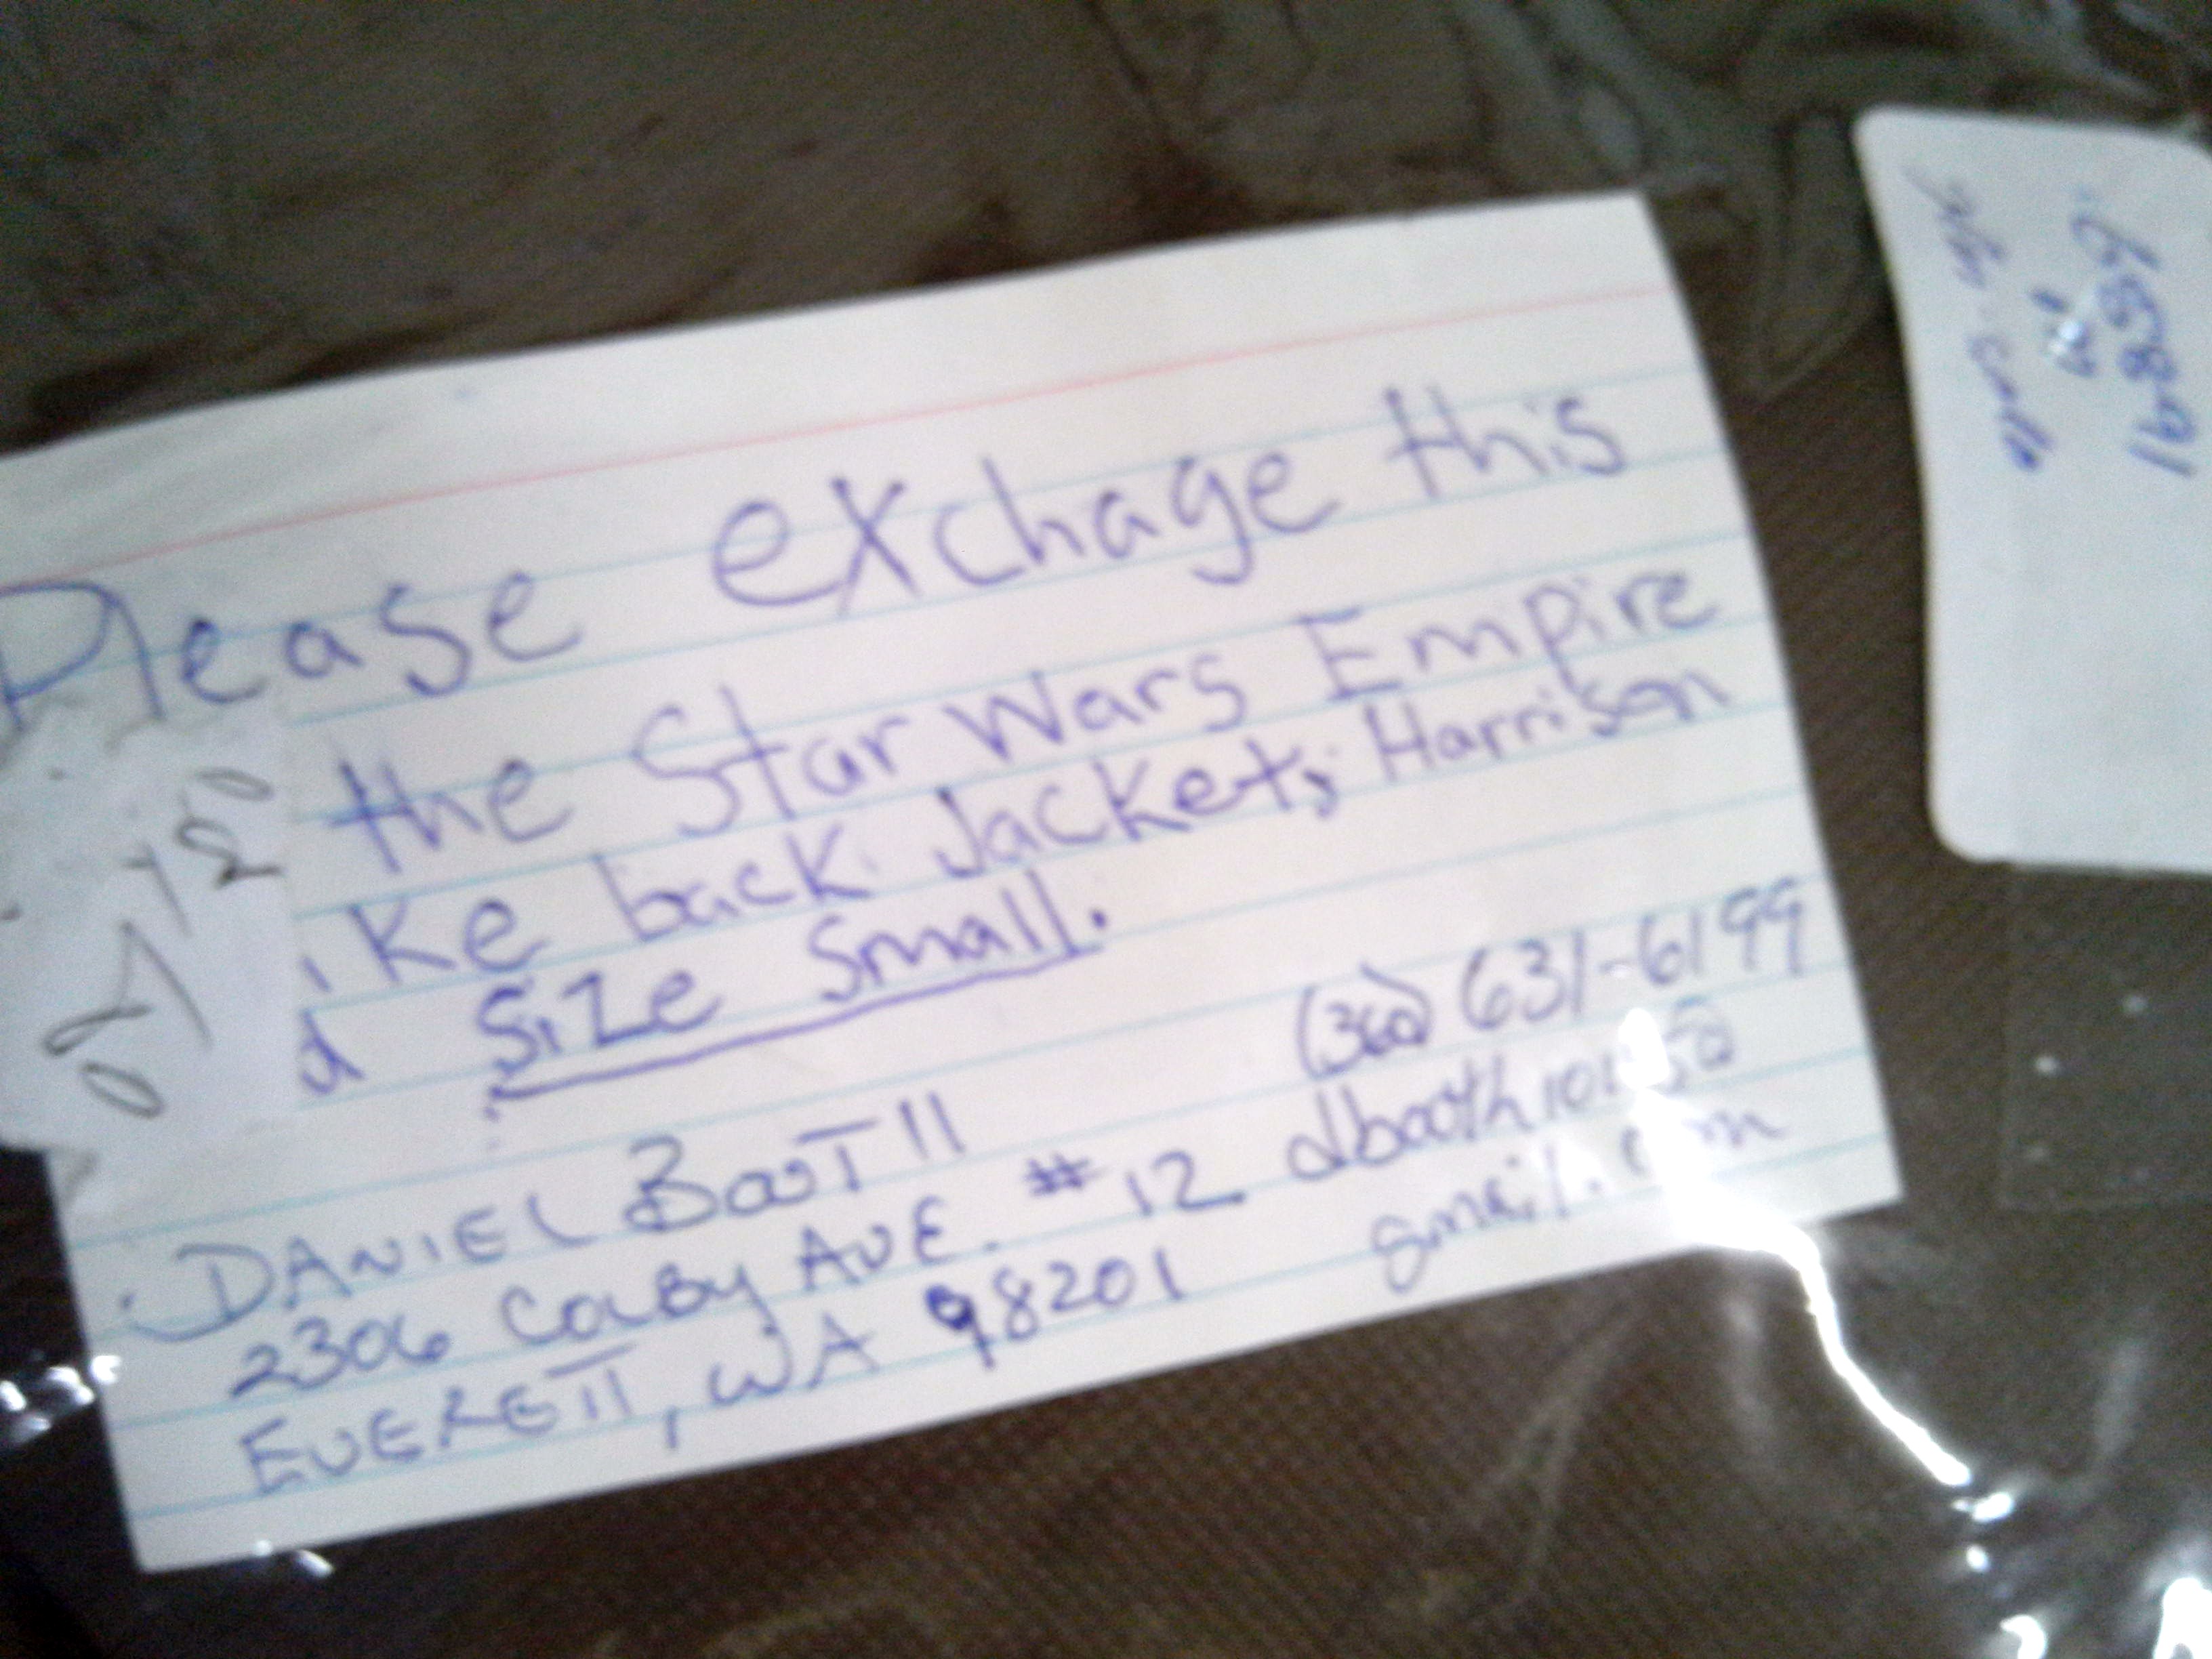 Please exchage this
the Star Wars Empire
ike back Jacket, Harrison
d Size Small.
(360) 631-6199
DANIEL BooTH
2306 COLBY AVE. #12
EVERETT, WA 98201
gmail.com
16859